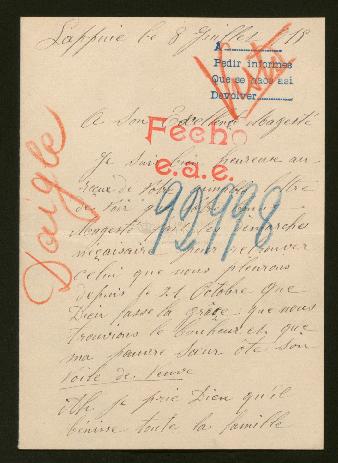 Lappuie le 8 Juillet 18
A
Pedir informes
Que se hace asi
Devolver
Visto
A Son Excellence Magesté
Fecho
e.d.e.
Daigle
Je suis bien heureuse au
reçue de votre lettre
de voir que votre
Magesté fait les démarches
niçaisaire pour retrouver
92998
celui que nous pleurons
depuis le 21 Octobre que
Dieu fasse la grâce que nous
trouvions le bonheur et que
ma pauvre sœur ôte son
voile de veuve
Ah je prie Dieu qu'il
bénisse toute la famille